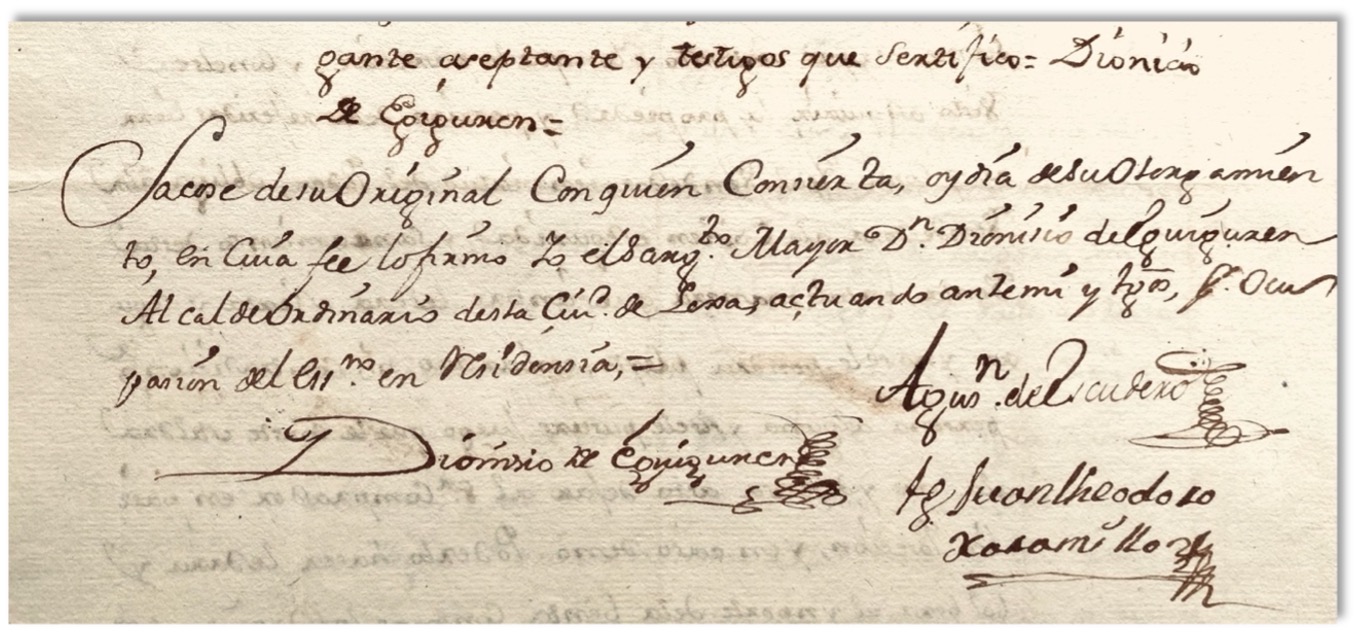 gante aseptante y testigos que Sertifico= Dionicio
de Eguiguren=
Sacose de su Original Con quien Consierta, oy dia de su Otorgamien
to, en Cuia fee lo firmo Yo el Sarg.to Mayor D.n Dionisio de Eguiguren
Alcalde Ordinario desta Ciu.d de Loxa, actuando ante mi y tg.os, p.r Ocu
pasion del Ess.no en Residensia,=
Agus.n de Escudero
Dionisio de Eguiguren
tg Juan Theodoro
Xaramillo